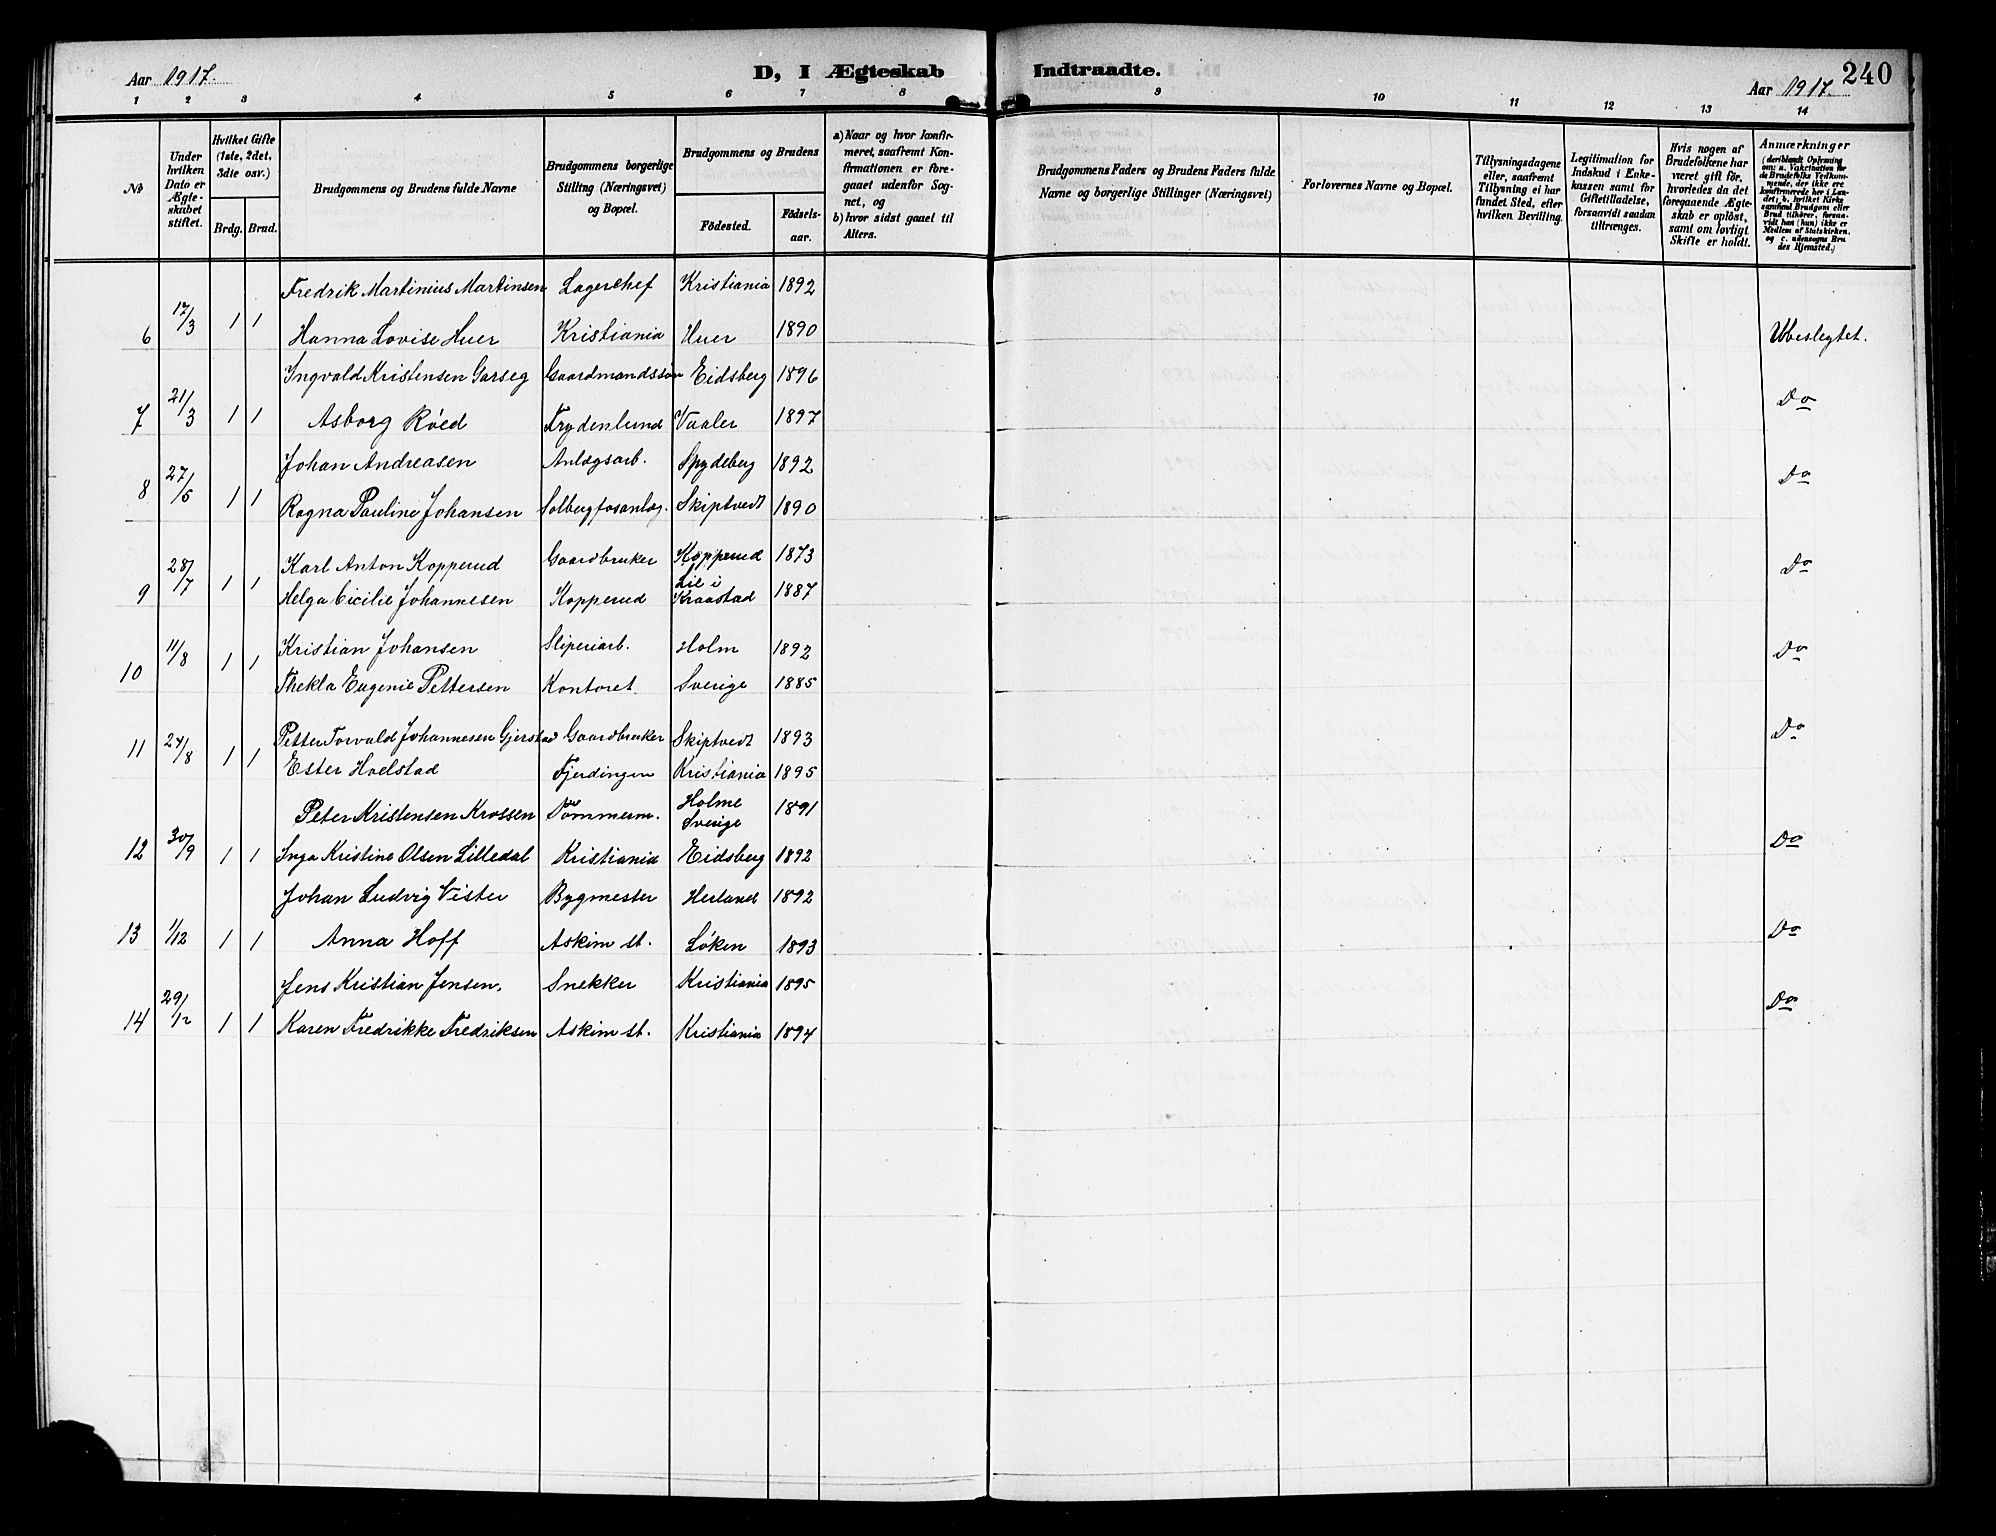 Aar 1917.
D, I Ægteskab
Indtraadte.
Aar 1917.
240
1 2 3 4 5 6 7 8 9 10 11 12 13 14
№
Under hvilken Dato er Ægteskabet stiftet.
Hvilket Gifte (1ste, 2det, 3die osv.)
Brdg. Brud.
Brudgommens og Brudens fulde Navne
Brudgommens borgerlige Stilling (Næringsvei) og Bopæl.
Brudgommens og Brudens
Födested.
Födselsaar.
a) Naar og hvor konfirmeret, saafremt Konfirmationen er foregaaet udenfor Sognet, og
b) hvor sidst gaaet til Alters.
Brudgommens Faders og Brudens Faders fulde Navne og borgerlige Stillinger (Næringsvei)
Forlovernes Navne og Bopæl.
Tillysningsdagene eller, saafremt Tillysning ei har fundet Sted, efter hvilken Bevilling.
Legitimation for Indskud i Enkekassen samt for Giftetilladelse, forsaavidt saadan tiltrænges.
Hvis nogen af Brudefolkene har været gift för, hvorledes da det foregaaende Ægteskab er oplöst, samt om lovligt Skifte er holdt.
Anmærkninger
(deriblandt Oplysning om: a. Vakcination for de Brudefolks Vedkommende, der ikke ere konfirmerede her i Landet; b. hvilket Kirkesamfund Brudgom eller Brud tilhører, forsaavidt han (hun) ikke er Medlem af Statskirken. og c. udensogns Brudes Hjemsted.)
Fredrik Martinius Martinsen Lagerchef Kristiania 1892
6 17/3 1 1 Hanna Lovise Huer Kristiania Huer 1890 Ubeslegtet.
Ingvald Kristensen Garseg Gaardmandssøn Eidsberg 1896
7 21/3 1 1 Asborg Röed Frydenlund Vaaler 1897 Do
Johan Andreasen Anlægsarb. Spydeberg 1892
8 27/5 1 1 Ragna Pauline Johansen Solbergfosanlæg. Skiptvedt 1890 Do
Karl Anton Kopperud Gaardbruker Kopperud 1873
9 28/7 1 1 Helga Cicilie Johannesen Kopperud Lie i Kraastad 1887 Do
Kristian Johansen Sliperiarb. Holm 1892
10 11/8 1 1 Thekla Eugenie Pettersen Kontoret Sverige 1885 Do
Petter Torvald Johannesen Gjerstad Gaardbruker Skiptvedt 1893
11 24/8 1 1 Ester Hoelstad Fjerdingen Kristiania 1895 Do
Peter Kristensen Krossen Tömmerm. Holme Sverige 1891
12 30/9 1 1 Inga Kristine Olsen Lilledal Kristiania Eidsberg 1892 Do
Johan Ludvig Vister Bygmester Herland 1892
13 1/12 1 1 Anna Hoff Askim st. Löken 1893 Do
Jens Kristian Jensen. Snekker Kristiania 1895
14 29/12 1 1 Karen Fredrikke Fredriksen Askim st. Kristiania 1894 Do